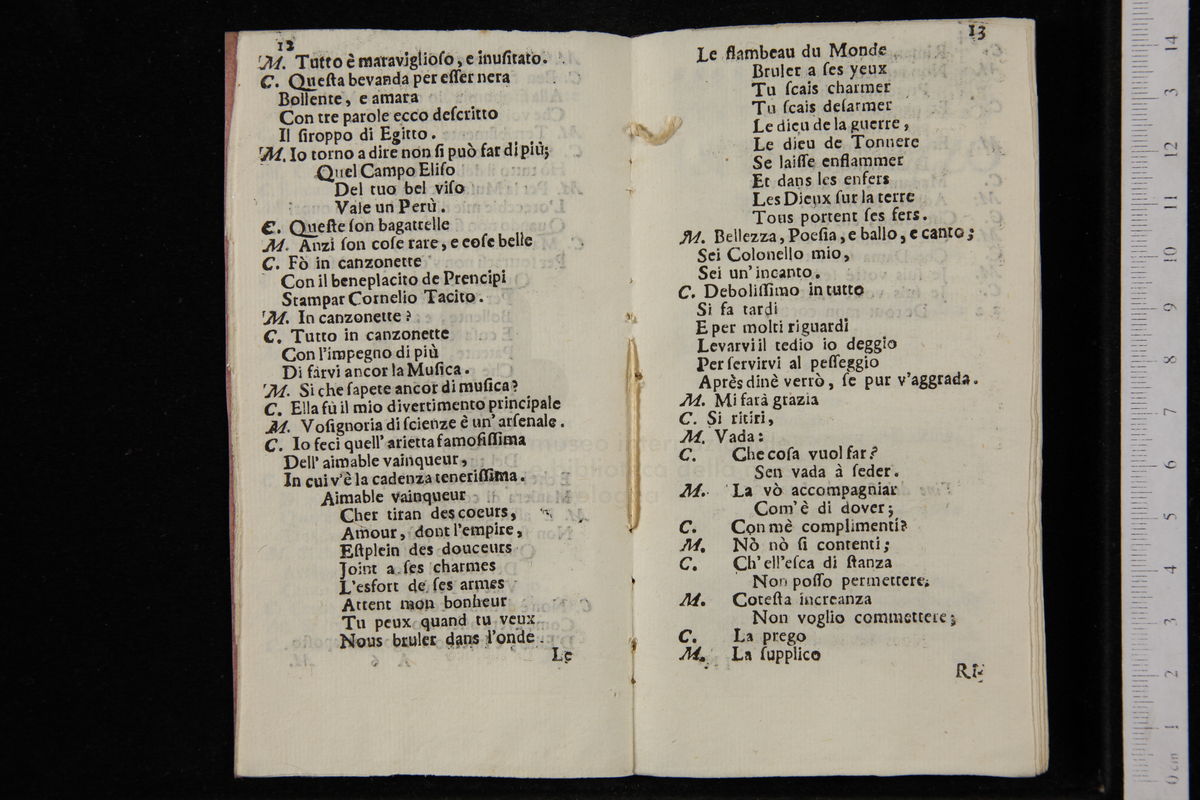 12
M. Tutto è maraviglioſo, e inuſitato.
C. Queſta bevanda per eſſer nera
Bollente, e amara
Con tre parole ecco deſcritto
Il ſiroppo di Egitto.
M. Io torno a dire non ſi può far di più;
Quel Campo Eliſo
Del tuo bel viſo
Vale un Perù.
C. Queſte ſon bagattelle
M. Anzi ſon coſe rare, e coſe belle
C. Fò in canzonette
Con il beneplacito de Prencipi
Stampar Cornelio Tacito.
M. In canzonette?
C. Tutto in canzonette
Con l'impegno di più
Di farvi ancor la Muſica.
M. Si che ſapete ancor di muſica?
C. Ella fù il mio divertimento principale
M. Voſignoria di ſcienze è un' arſenale.
C. Io feci quell' arietta famoſiſſima
Dell' aimable vainqueur,
In cui v'è la cadenza teneriſſima.
Aimable vainqueur
Cher tiran des coeurs,
Amour, dont l'empire,
Eſtplein des douceurs
Joint a ſes charmes
L'esfort de ſes armes
Attent mon bonheur
Tu peux quand tu veux
Nous bruler dans l'onde.
Le
13
Le flambeau du Monde
Bruler a ſes yeux
Tu ſcais charmer
Tu ſcais deſarmer
Le dieu de la guerre,
Le dieu de Tonnere
Se laiſſe enflammer
Et dans les enfers
Les Dieux ſur la terre
Tous portent ſes fers.
M. Bellezza, Poeſia, e ballo, e canto;
Sei Colonello mio,
Sei un' incanto.
C. Deboliſſimo in tutto
Si fa tardi
E per molti riguardi
Levarvi il tedio io deggio
Per ſervirvi al peſſeggio
Après dinè verrò, ſe pur v'aggrada.
M. Mi farà grazia
C. Si ritiri,
M. Vada:
C. Che coſa vuol far?
Sen vada à ſeder.
M. La vò accompagniar
Com' è di dover;
C. Con mè complimenti?
M. Nò nò ſi contenti;
C. Ch' ell'eſca di ſtanza
Non poſſo permettere;
M. Coteſta increanza
Non voglio commettere;
C. La prego
M. La ſupplico